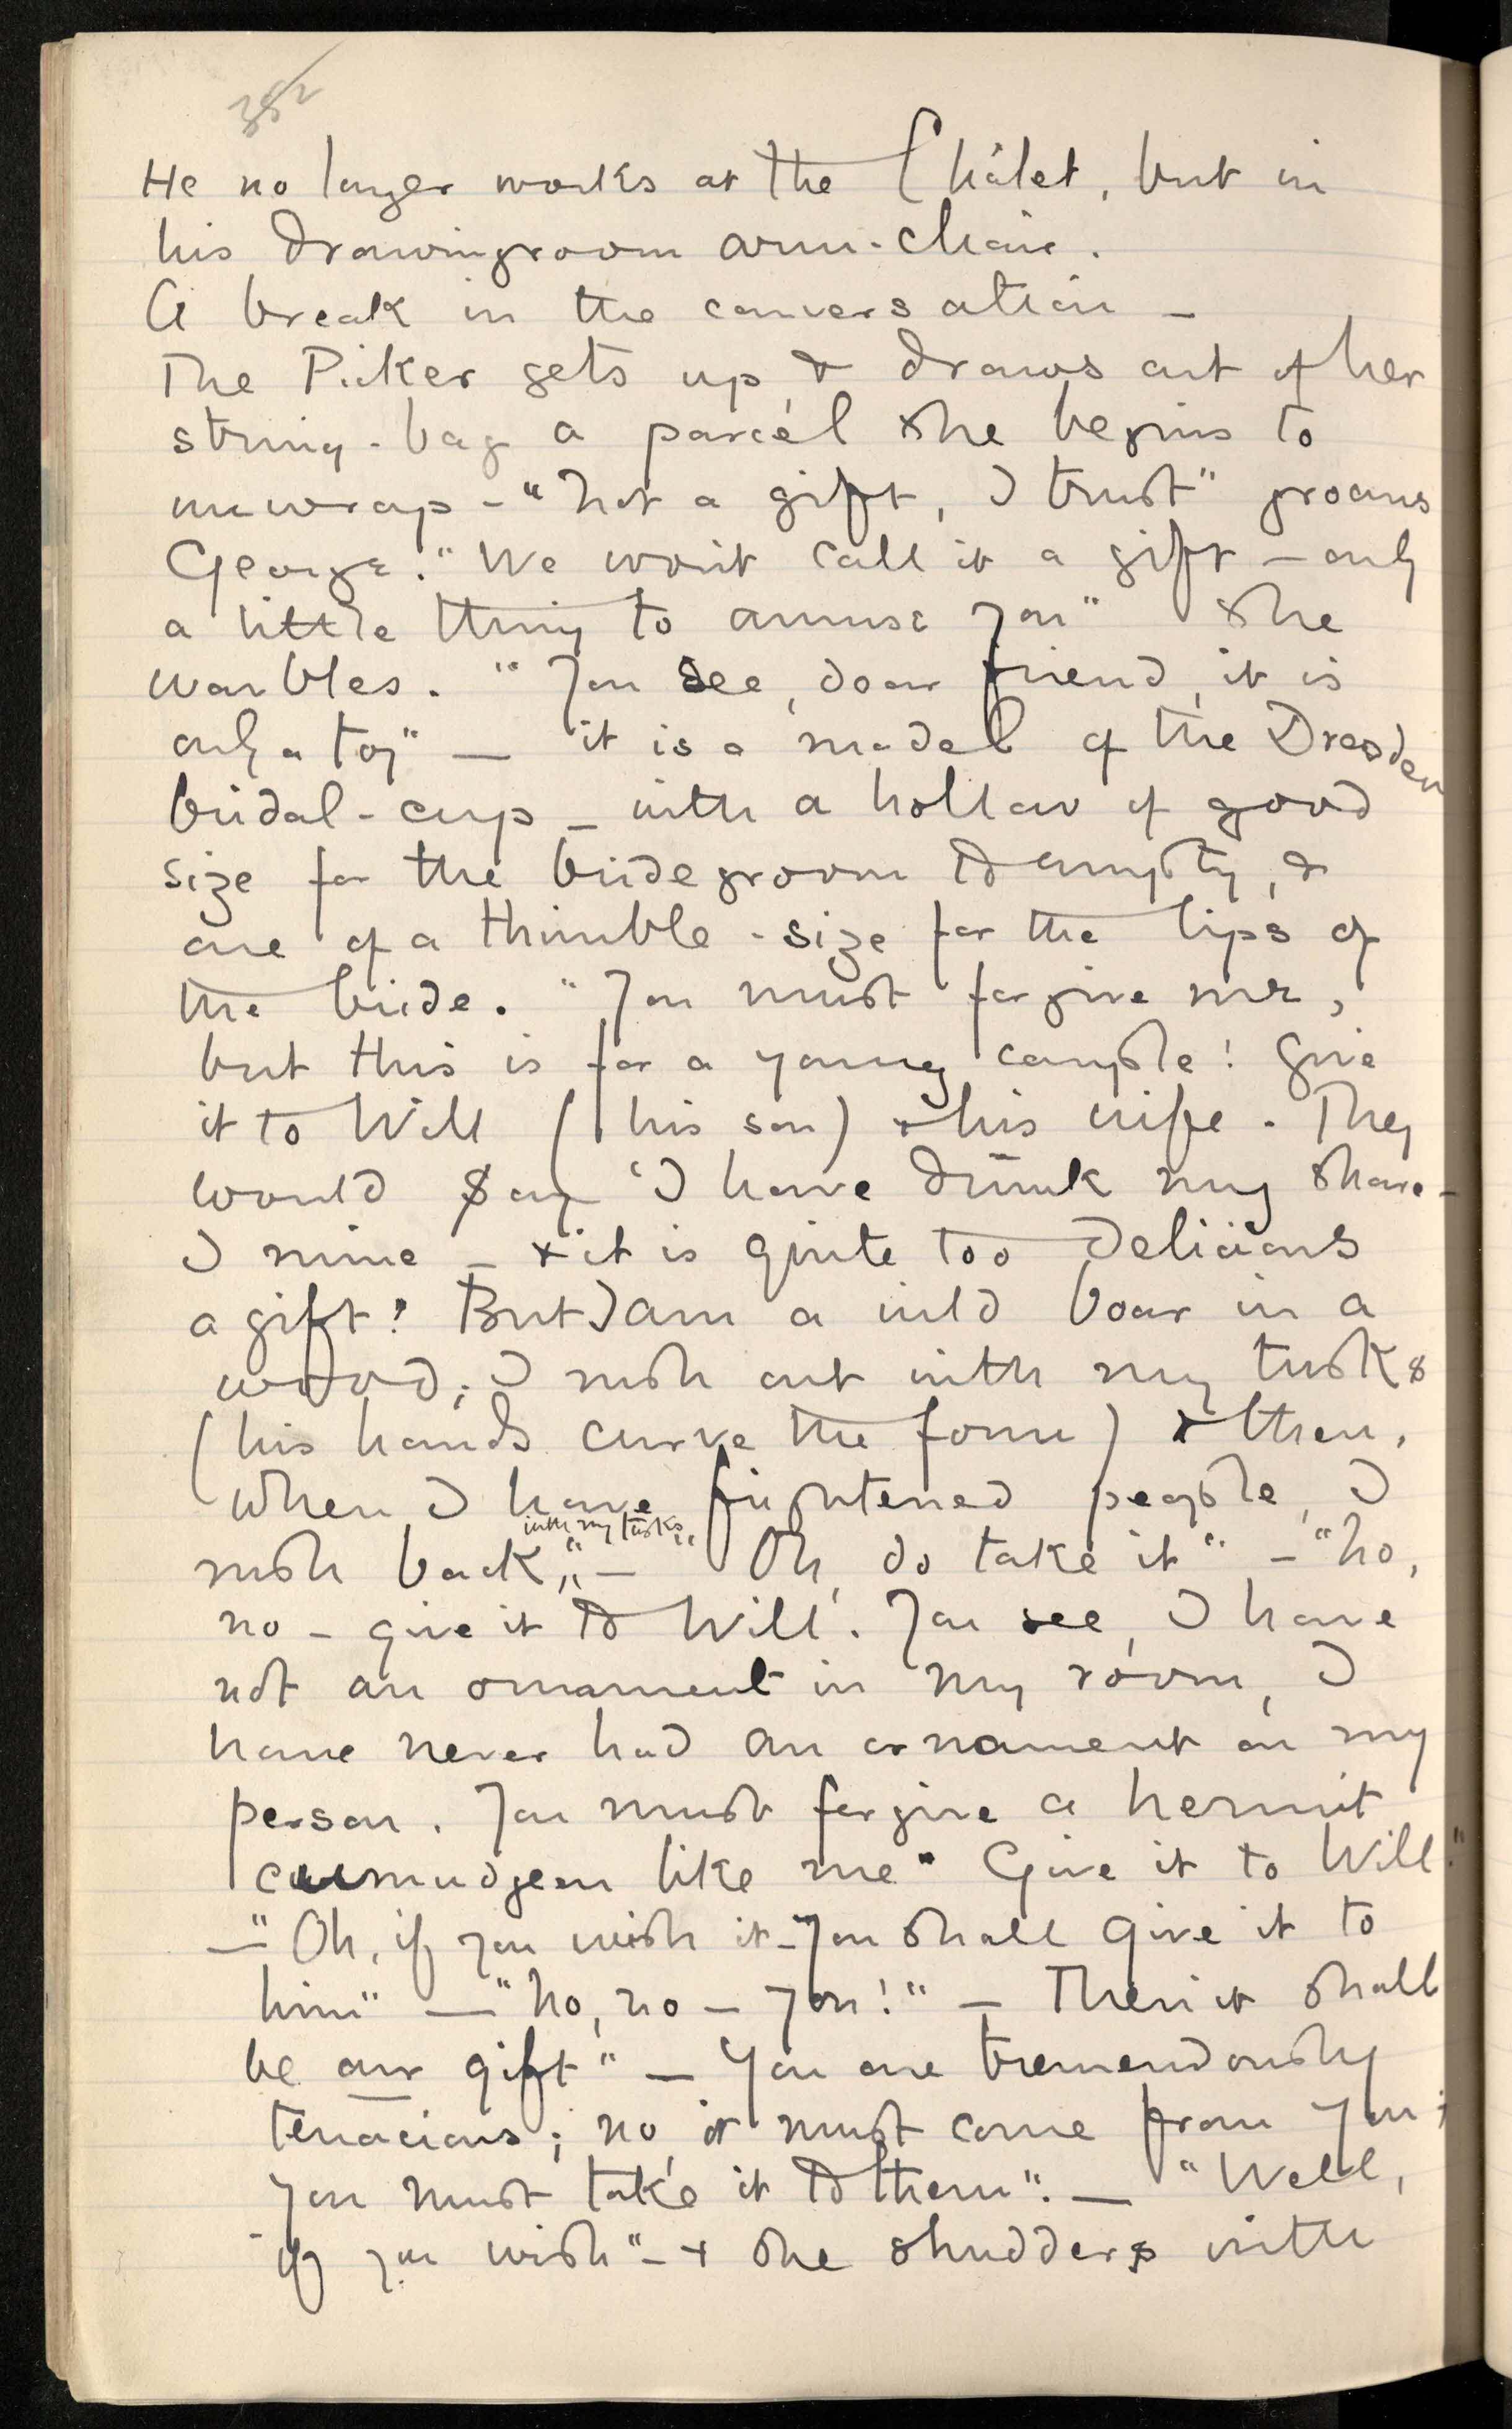 352
He no longer works at the Châlet, but in
his drawingroom arm-chair.
A break in the conversation –
The Picker gets up, & draws out of her
string-bag a parcel she begins to
unwrap – "Not a gift, I trust" groans
George. "We won't call it a gift – only
a little thing to amuse you" she
warbles. "You see, dear friend, it is
only a toy" — it is a model of the Dresden
bridal-cup – with a hollow of good
size for the bridegroom to empty, &
one of a thimble-size for the lips of
the bride. "You must forgive me,
but this is for a young couple! Give
it to Will (his son) & his wife. They
would say 'I have drunk my share –
I mine – & it is quite too delicious
a gift! But I am a wild boar in a
wood; I rush out with my tusks
(his hands curve the form) & then,
when I have frightened people, I
with my tusks
rush back," – "Oh, do take it" – "No,
no – give it to Will. You see, I have
not an ornament in my room, I
have never had an ornament on my
person. You must forgive a hermit
curmudgeon like me. Give it to Will."
— "Oh, if you wish it – you shall give it to
him" — "No, no – you!" – Then it shall
be our gift" – You are tremendously
tenacious; no, it must come from you;
you must take it to them". — "Well,
if you wish" – & she shudders with